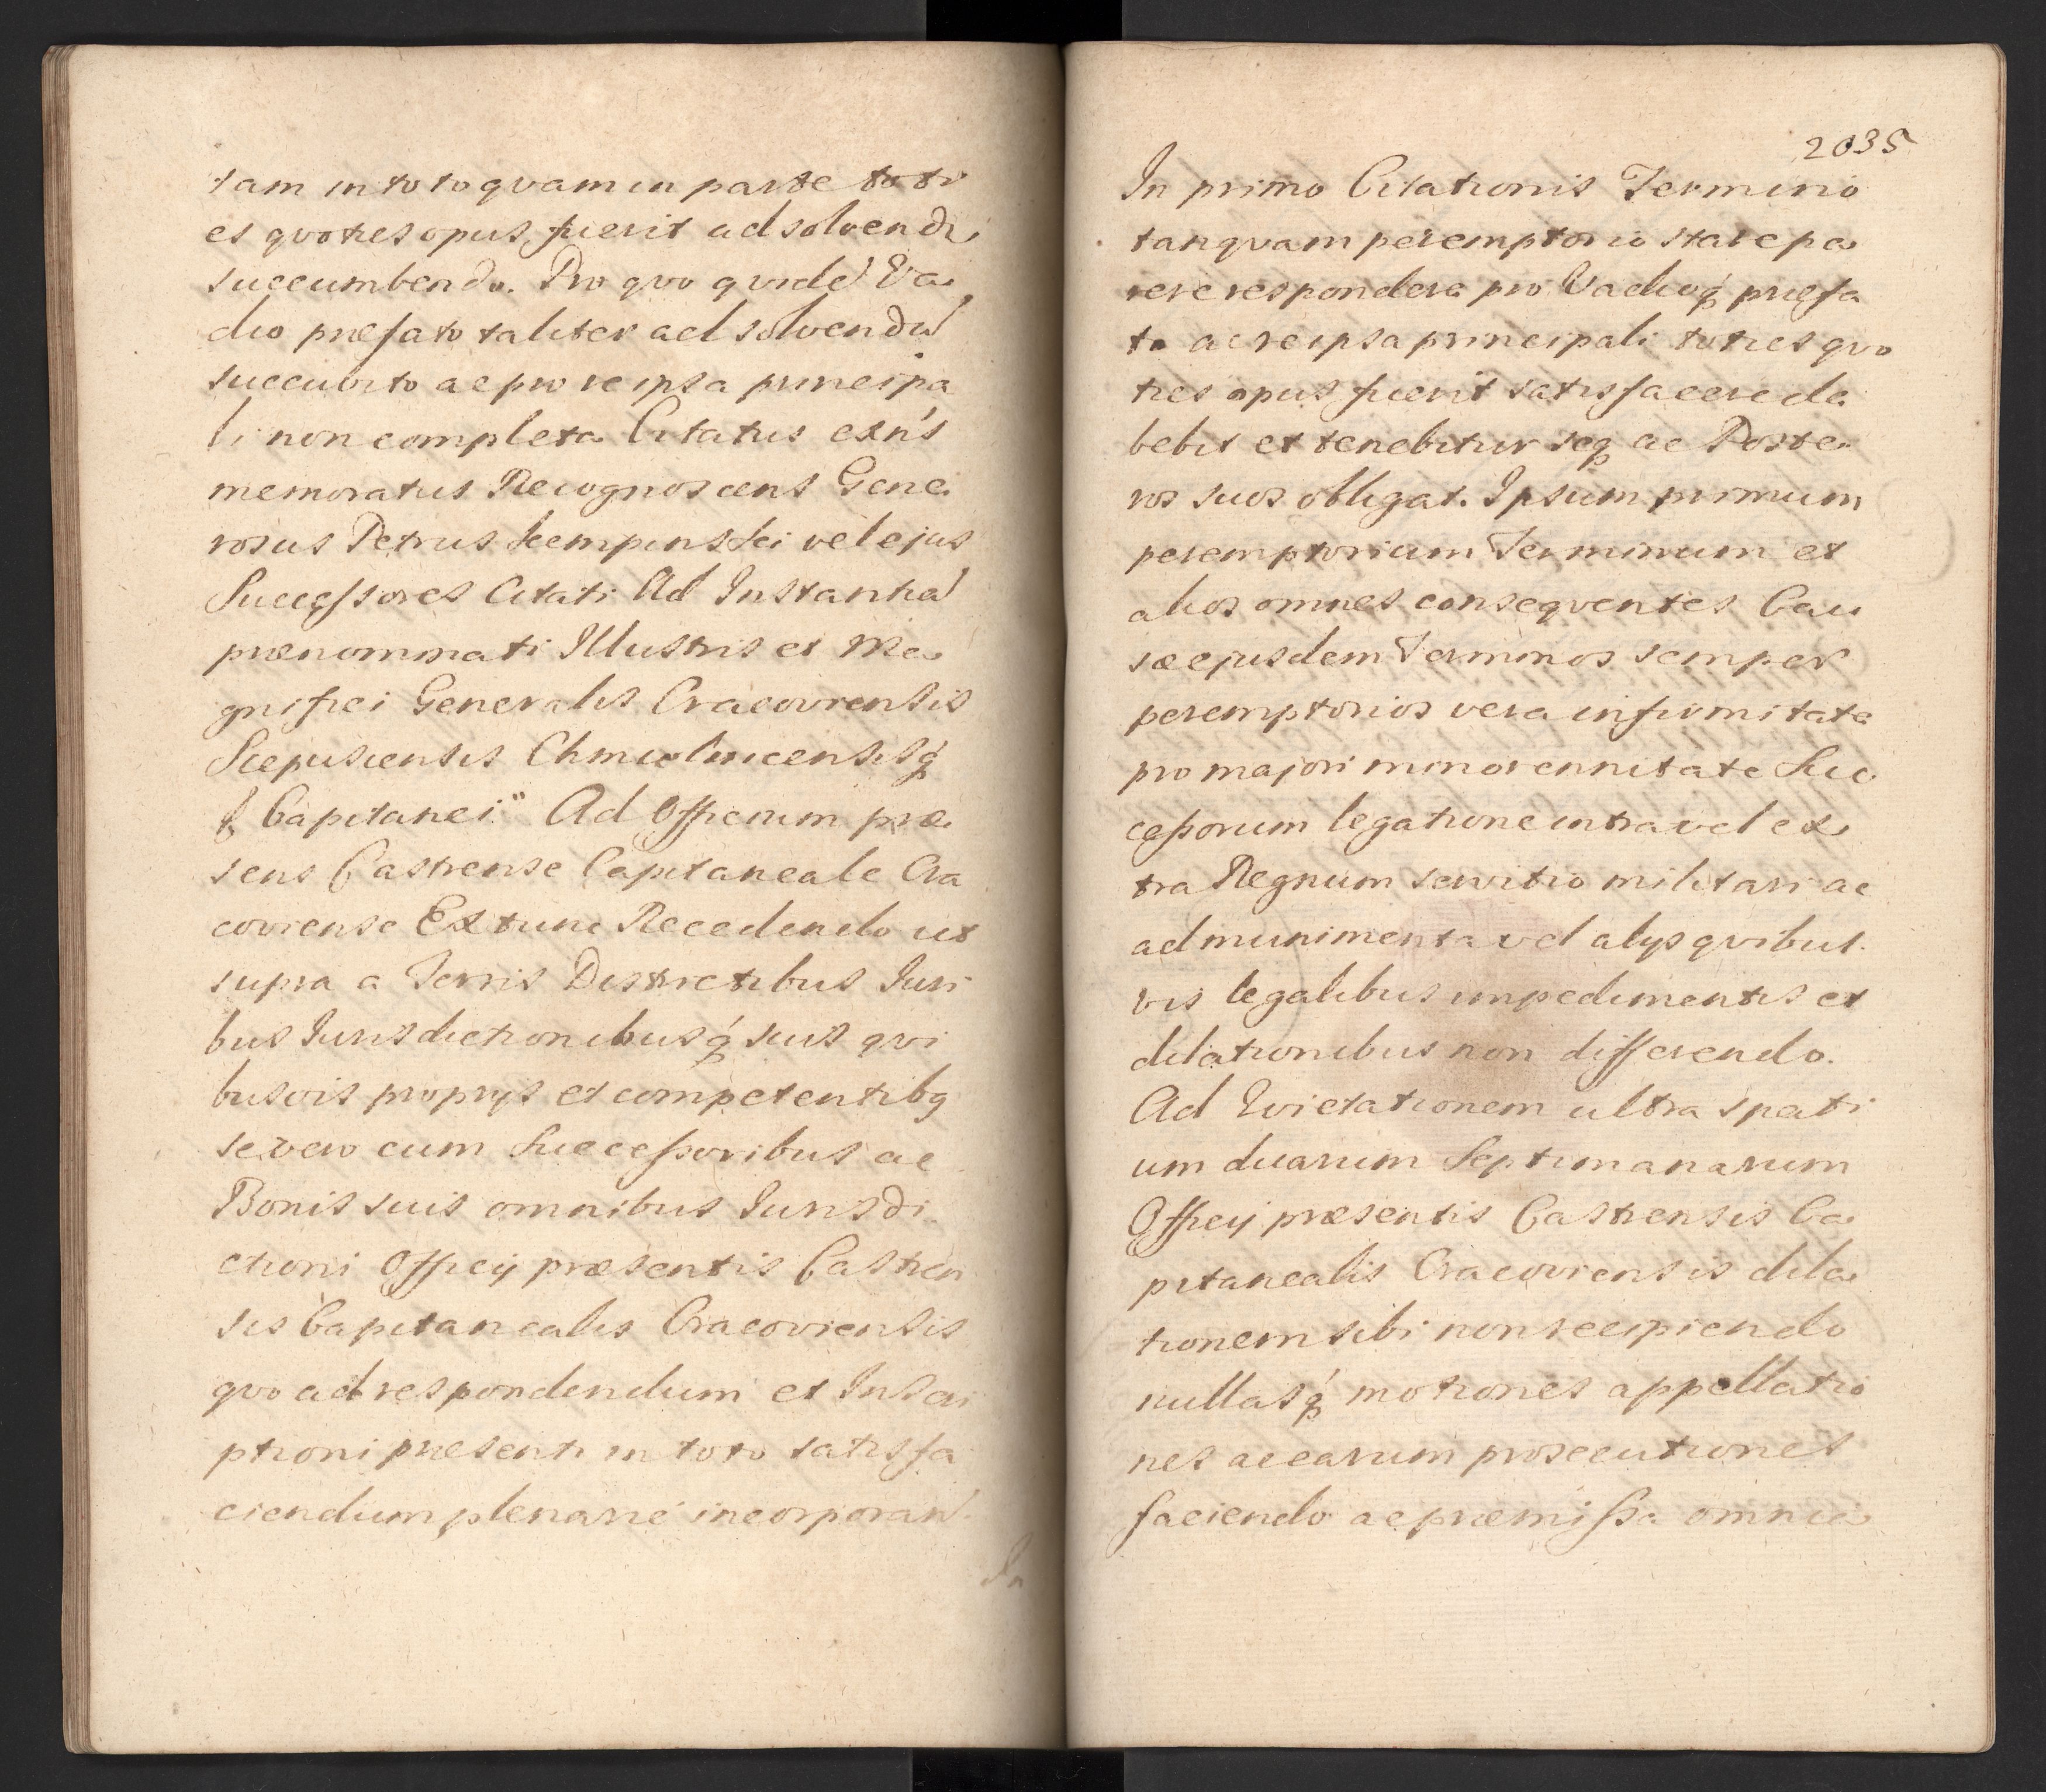 tam in toto quam in parte toti
es quoties opus fuerit ad solvendū
succumbendo. Pro quo quidē Va
dio præfato taliter ad solvendū
succubito ac pro re ipsa principa
li non completa Citatus exn's
memoratus Recognoscens Gene
rosus Petrus Kempinski vel ejus
Successores Citati Ad Instantiā
prænominati Illustris et Ma
gnifici Generalis Cracoviensis
Scepusiensis Chmielnicensisq́
Capitanei. Ad Officium præ
sens Castrense Capitaneale Cra
coviense Ex tunc Recedendo ut
supra a Terris Districtibus Juri
bus Jurisdictionibusq́ suis qui
busvis proprys et competentibq
se vero cum Successoribus ac
Bonis suis omnibus Jurisdi
ctioni Officy præsentis Castren
sis Capitanealis Cracoviensis
quo ad respondendum et Inscri
ptioni præsenti in toto satisfa
ciendum plenarie incorporan̄.
In
2035
In primo Citationis Termino
tanquam peremptorio stare pa
rere respondere pro Vadioq́ præfa
to ac re ipsa principali toties quo
ties opus fuerit satisfacere de
bebit et tenebitur seq ac Poste
ros suos obligat. Ipsum primum
peremptorium Terminum et
alios omnes consequentes Cau
sæ ejusdem Terminos semper
peremptorios vera infirmitate
pro majori minorennitate Suc
cessorum legatione intra vel ex
tra Regnum servitio militari ac
ad munimenta vel alys quibus
vis legalibus impedimentis et
dilationibus non differendo.
Ad Evictationem ultra spati
um duarum Septimanarum
Officy præsentis Castrensis Ca
pitanealis Cracoviensis dila
tionem sibi non recipiendo
nullasq́ motiones appellatio
nes ac earum prosecutiones
faciendo ac præmissa omnia